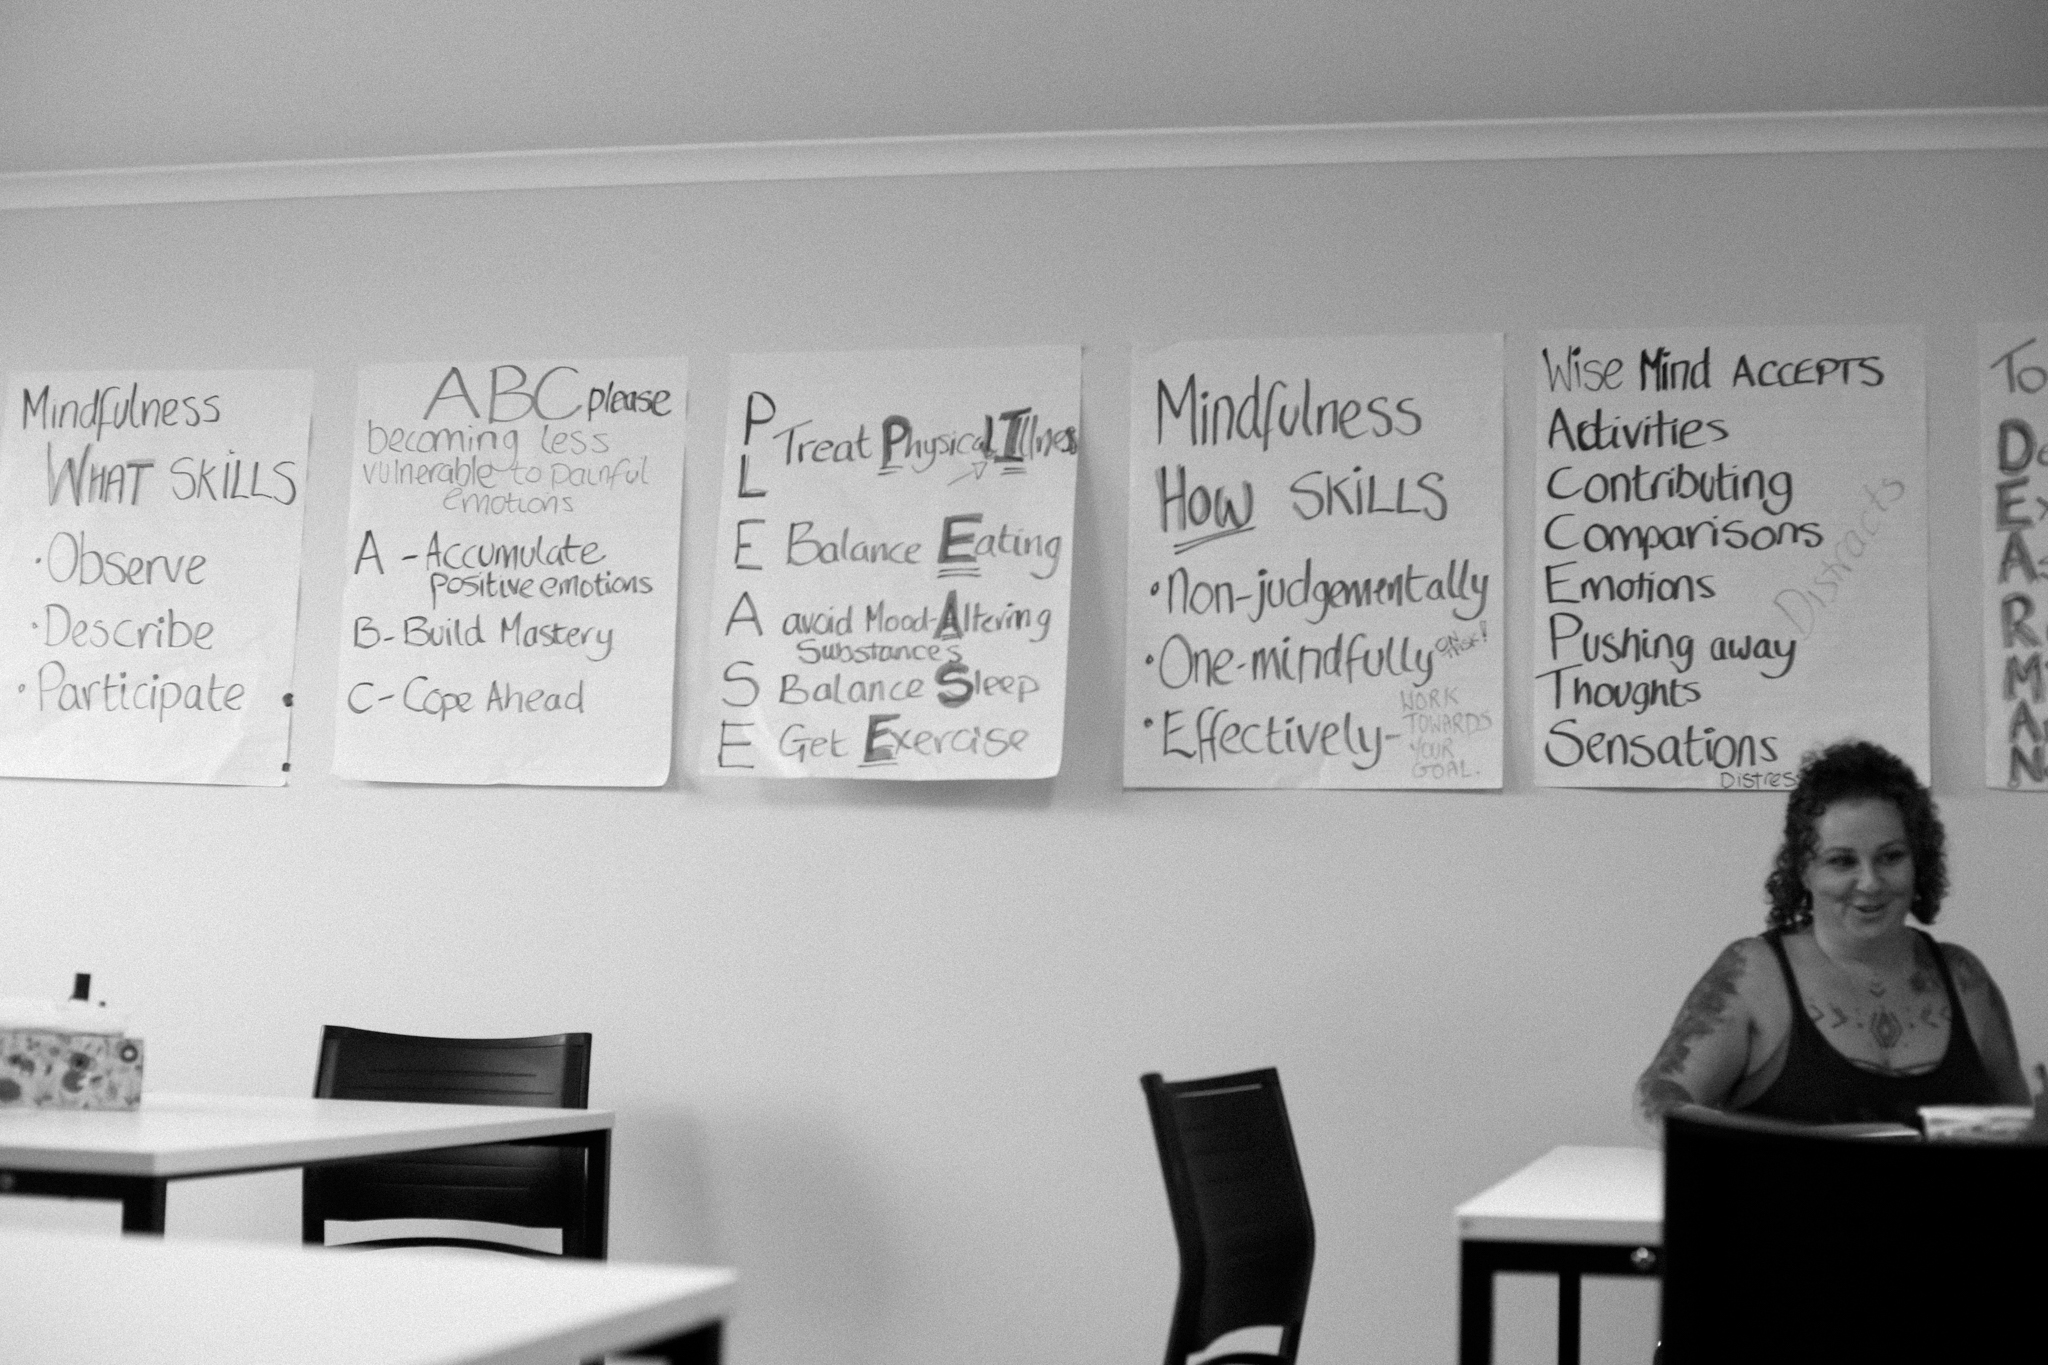 Mindfulness
WHAT SKILLS
·Observe
·Describe
·Participate
ABC please
becoming less
vulnerable to painful
emotions
A - Accumulate
positive emotions
B - Build Mastery
C - Cope Ahead
P
L
Treat Physical Illness
E Balance Eating
A avoid Mood-Altering
Substances
S Balance Sleep
E Get Exercise
Mindfulness
HOW SKILLS
·Non-judgementally
·One-mindfully
·Effectively-
WORK
TOWARDS
YOUR
GOAL.
Wise Mind ACCEPTS
Activities
Contributing
Comparisons
Emotions
Pushing away
Thoughts
Sensations
Distracts
To
D
E
A
R
M
A
N